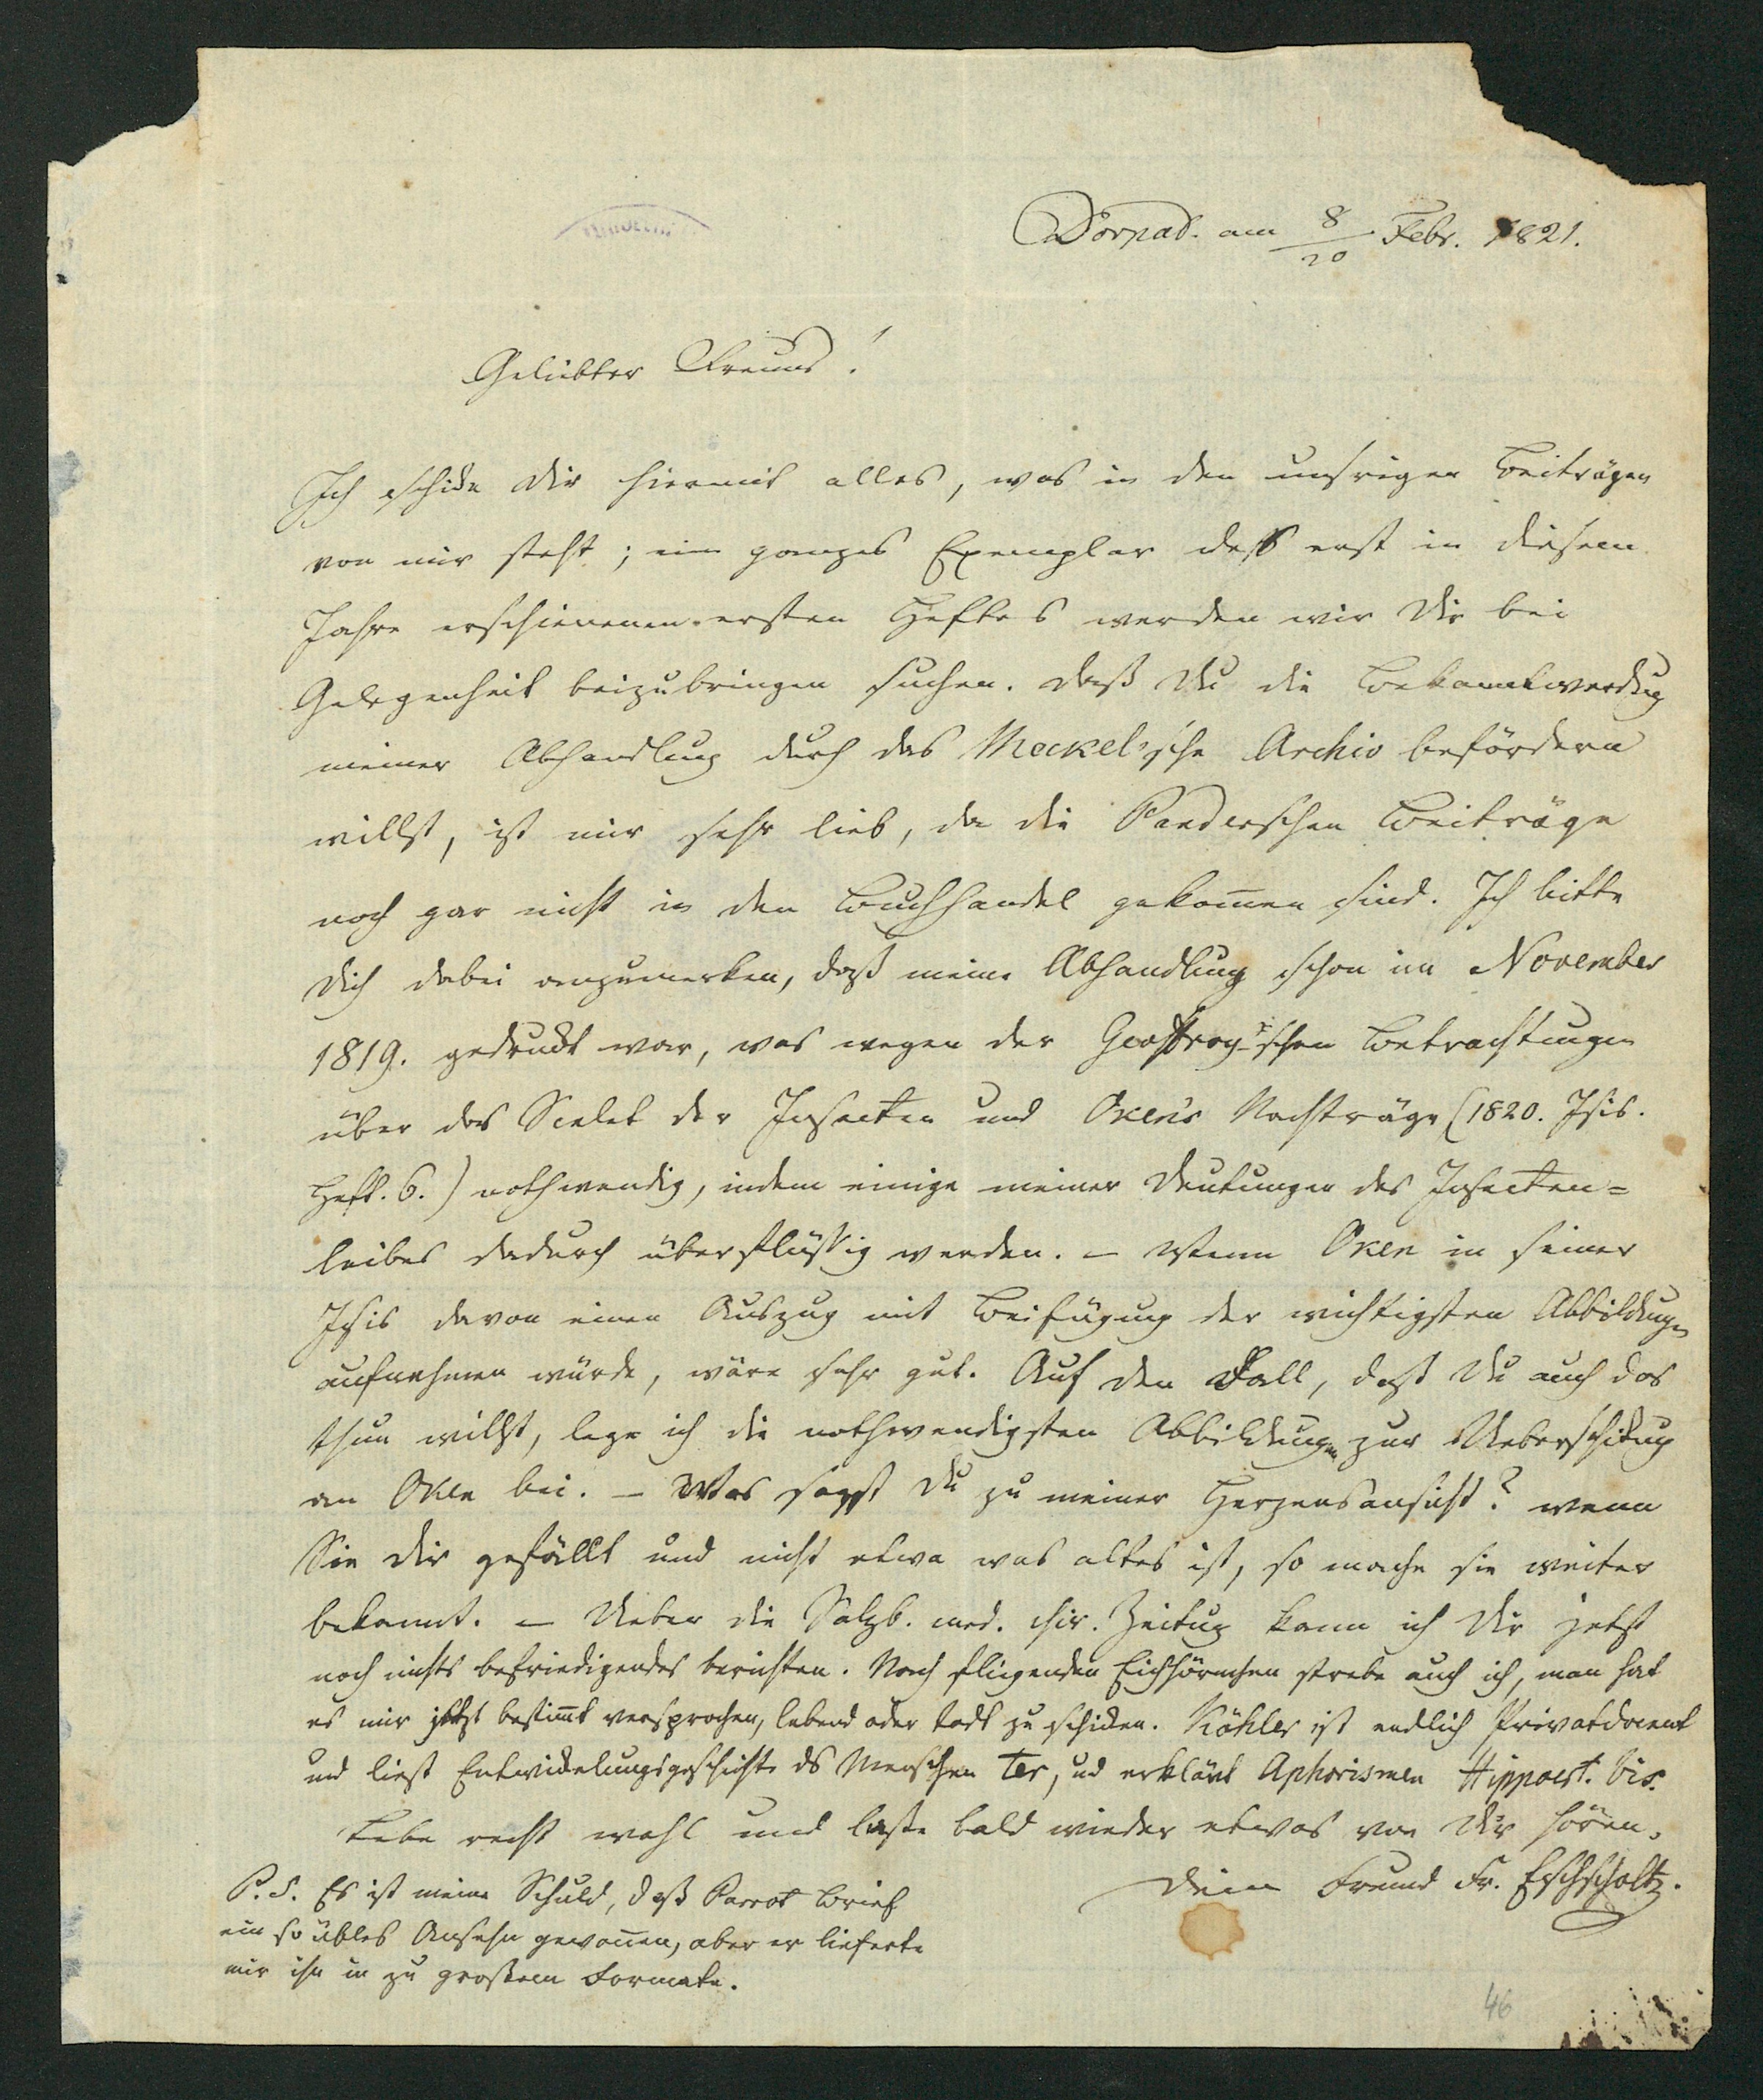 Dorpat. am 8/20 Febr. 1821.
Geliebter Freund!
Ich schicke Dir hiermit alles, was in den unsrigen Beiträgen
von mir steht; ein ganzes Exemplar des erst in diesem
Jahre erschienenen ersten Heftes werden wir Dir bei
Gelegenheit beizubringen suchen. Daß Du die Bekanntwerdung
meiner Abhandlung durch das Meckel'sche Archiv befördern
willst, ist mir sehr lieb, da die Panderschen Beiträge
noch gar nicht in den Buchhandel gekom̅en sind. Ich bitte
Dich dabei anzumerken, daß meine Abhandlung schon im November
1819. gedruckt war, was wegen der Geoffroy'schen Betrachtungen
über das Scelet der Insecten und Oken's Nachträge (1820. Isis.
Heft. 6.) nothwendig, indem einige meiner Deutungen des Insecten=
leibes dadurch überflüssig werden. – Wenn Oken in seiner
Isis davon einen Auszug mit Beifügung der wichtigsten Abbildungen
aufnehmen würde, wäre sehr gut. Auf den Fall, daß Du auch das
thun willst, lege ich die nothwendigsten Abbildungen zur Ueberschickung
an Oken bei. – Was sagst Du zu meiner Herzensansicht? wenn
Sie Dir gefällt und nicht etwa was altes ist, so mache sie weiter
bekannt. – Ueber die Salzb. med. chir. Zeitung kann ich Dir jetzt
noch nichts befriedigendes berichten. Nach fliegenden Eichhörnchen strebe auch ich, man hat
es mir jetzt bestim̅t versprochen, lebend oder todt zu schicken. Köhler ist endlich Privatdocent
und liest Entwickelungsgeschichte ds Menschen ter, und erklärt Aphorismen Hippocrt. bis.
Lebe recht wohl und lasse bald wieder etwas von Dir hören.
Dein Freund Fr. Eschscholtz.
P.S. Es ist meine Schuld, daß Parrot Brief
ein so übles Ansehn gewon̅en, aber er lieferte
mir ihn in zu großem Formate.
46